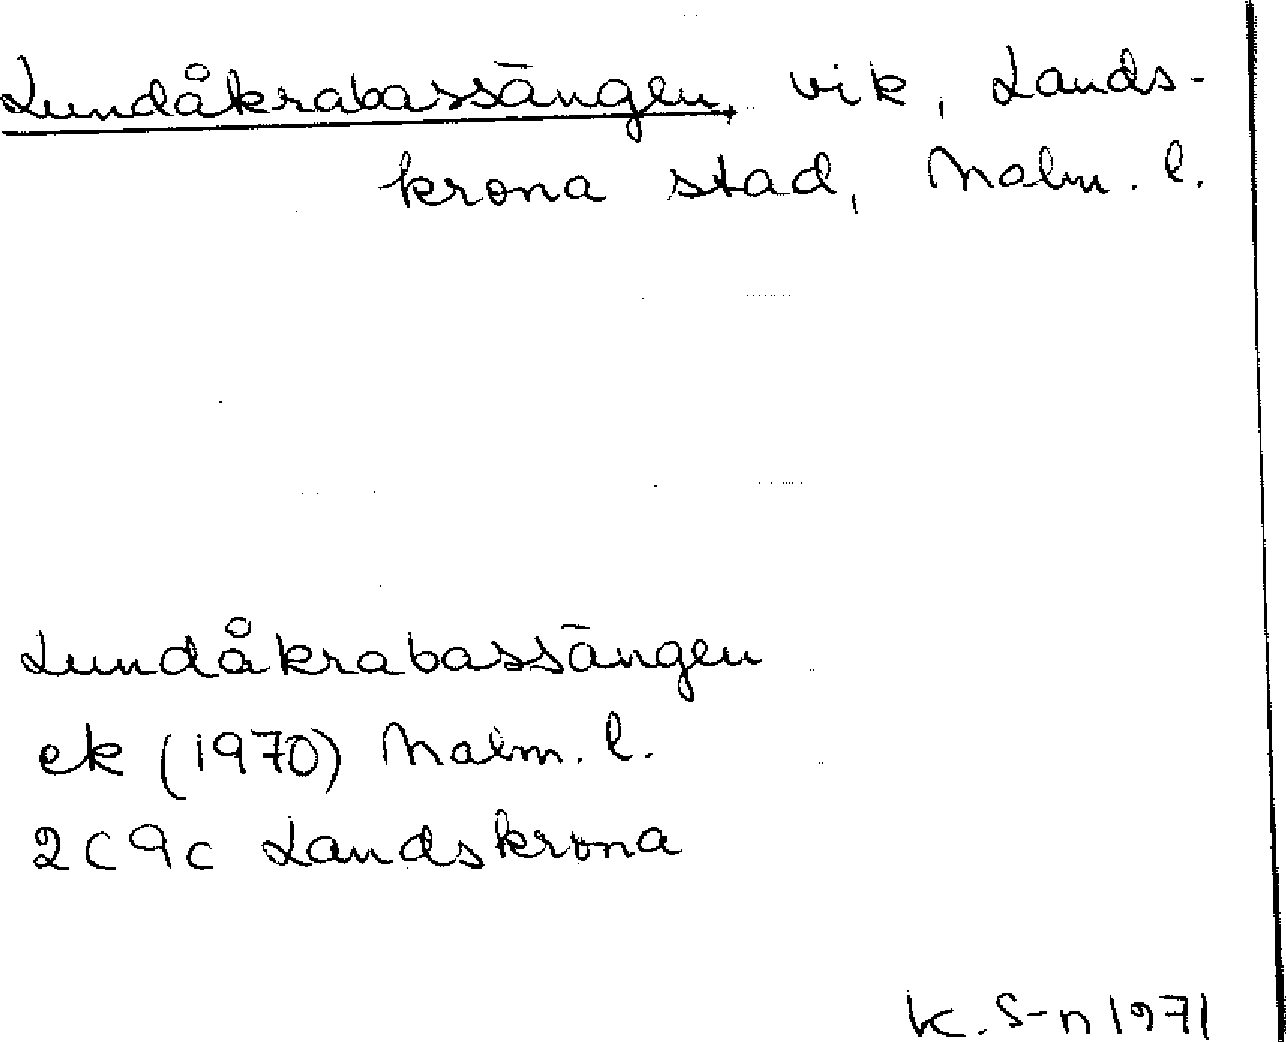 Lundåkrabassängen, vik, Lands-
krona stad, Malm. l.
Lundåkrabassängen
ek (1970) Malm. l.
2C9c Landskrona
K. S-n 1971